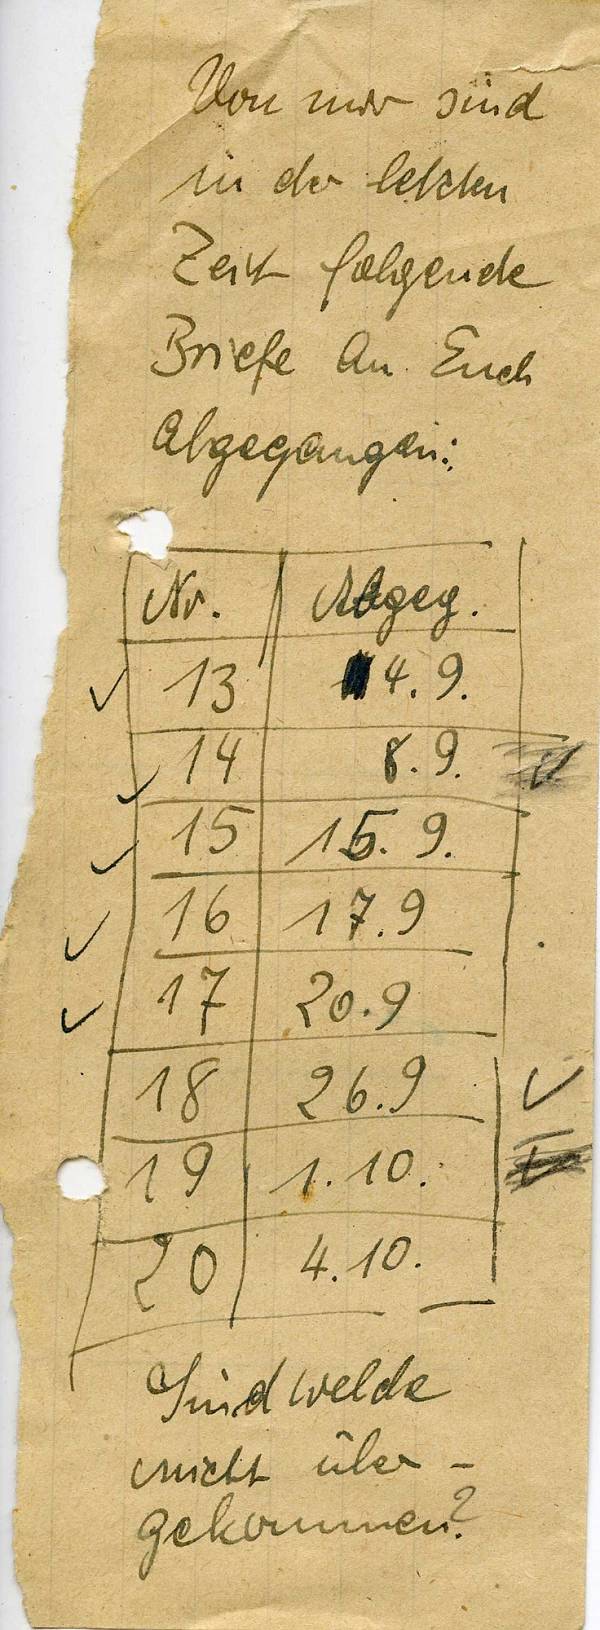 Von mir sind
in der letzten
Zeit folgende
Briefe an Euch
abgegangen:
Nr. Abgeg.
✓ 13 4.9.
✓ 14 8.9. ✓
✓ 15 15.9.
✓ 16 17.9
✓ 17 20.9
18 26.9 ✓
19 1.10.
20 4.10.
Sind welche
nicht über-
gekommen?